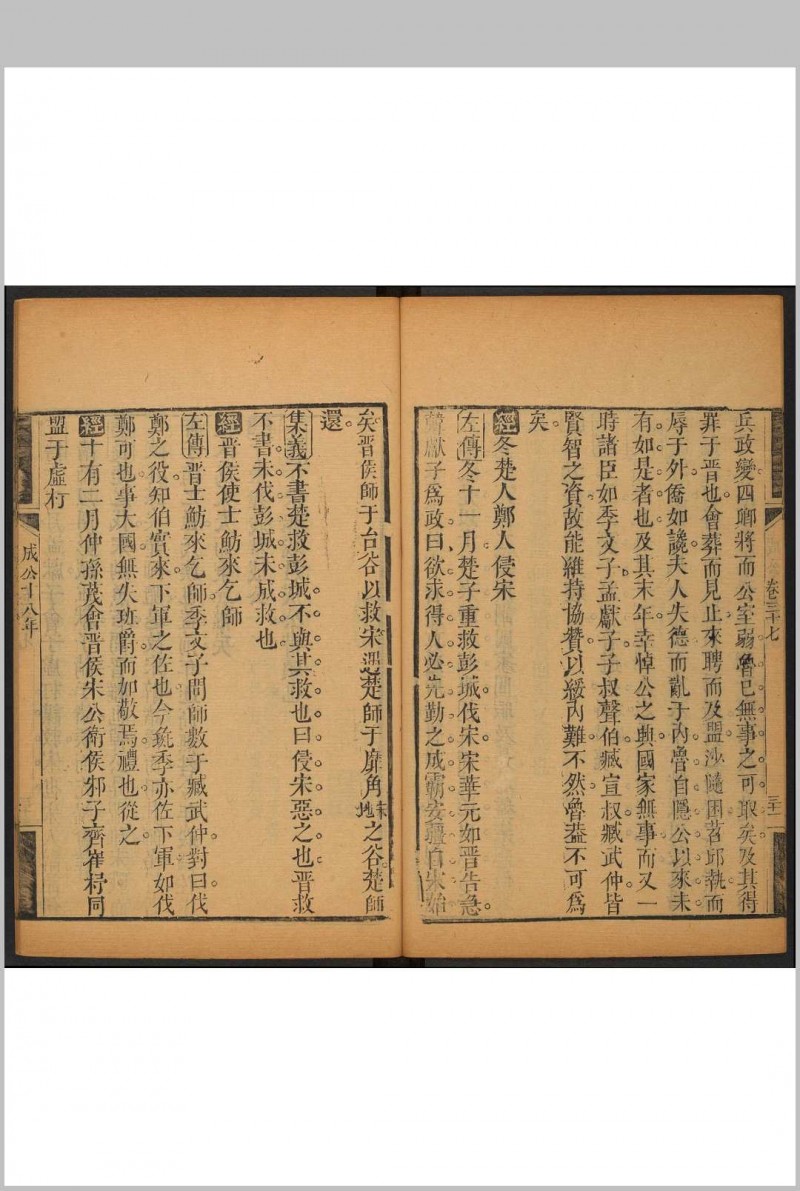 卷三十七
三十一
兵政變四卿將而公室弱魯已無事之可取矣及其得
罪于晉也會葬而見止來聘而及盟沙隨困苕邱執而
辱于外僑如讒夫人失德而亂于內魯自隱公以來未
有如是者也及其末年幸悼公之興國家無事而又一
時諸臣如季文子孟獻子子叔聲伯臧宣叔臧武仲皆
賢智之資故能維持協贊以綏內難不然魯葢不可爲
矣
經冬楚人鄭人侵宋
左傳冬十一月楚子重救彭城伐宋宋華元如晉告急
韓獻子爲政曰欲求得人必先勤之成霸安疆自宋始
矣晉侯師于台谷以救宋遇楚師于靡角宋地之谷楚師
還
集義不書楚救彭城不與其救也曰侵宋惡之也晉救
不書未伐彭城未成救也
經晉侯使士魴來乞師
左傳晉士魴來乞師季文子問師數于臧武仲對曰伐
鄭之役知伯實來下軍之佐也今彘季亦佐下軍如伐
鄭可也事大國無失班爵而加敬焉禮也從之
經十有二月仲孫蔑會晉侯宋公衛侯邾子齊崔杼同
盟于虛朾
成公十八年